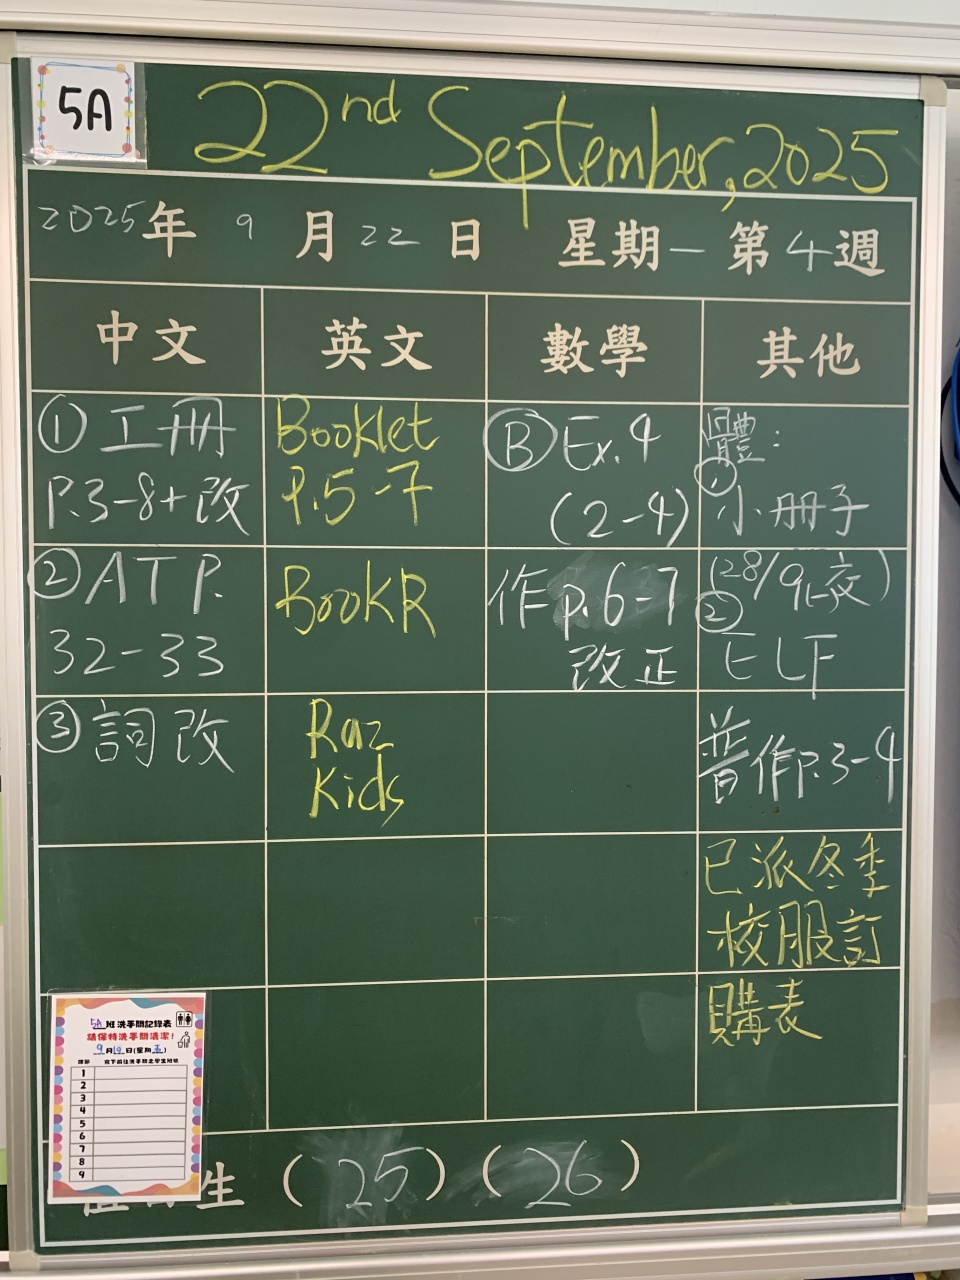 5A
22nd September, 2025
2025年 9月22日 星期一 第4週
中文
英文
數學
其他
①工冊
P.3-8+改
②ATP.
32-33
③詞改
Booklet
P.5-7
BookR
Raz
Kids
Ⓑ Ex.4
(2-4)
作p.6-7
改正
體:
①
小冊子
(28/9上交)
②
ELF
普作P.3-4
已派冬季
校服訂
購表
5A班洗手間記錄表
請保持洗手間清潔!
9月19日(星期五)
課節 寫下前往洗手間之學生班號
1
2
3
4
5
6
7
8
9
生 (25) (26)